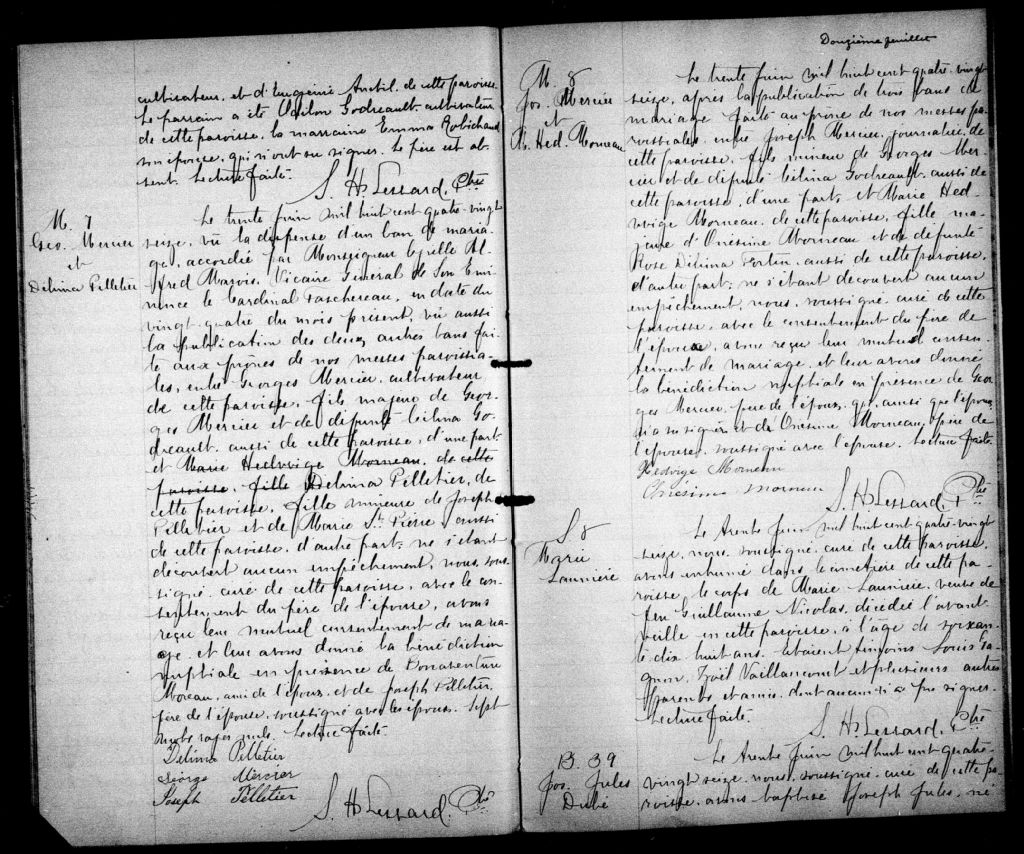 cultivateur, et d'Eugénie Anctil de cette paroisse.
Le parrain a été Odilon Godreault cultivateur
de cette paroisse, la marraine Emma Robichaud
son épouse, qui n'ont su signer. Le père est ab-
sent. Lecture faite.
S. H. Lessard, Ptre
M. 7
Geo. Mercier
et
Delvina Pelletier
Le trente Juin mil huit cent quatre-vingt
seize, vu la dispense d'un ban de maria-
ge, accordée par Monseigneur Cyrille Al-
fred Marois, Vicaire Général de Son Emi-
nence le Cardinal Taschereau, en date du
vingt-quatre du mois présent, vu aussi
la publication des deux autres bans fai-
te aux prônes de nos messes paroissia-
les, entre Georges Mercier, cultivateur
de cette paroisse, fils majeur de Geor-
ges Mercier et de défunte Célina Go-
dreault, aussi de cette paroisse, d'une part
et Marie Hedwige Morneau, de cette
paroisse, fille Delvina Pelletier, de
cette paroisse, fille mineure de Joseph
Pelletier et de Marie St. Pierre, aussi
de cette paroisse, d'autre part; ne s'étant
découvert aucun empêchement, nous, sous-
signé, curé de cette paroisse, avec le con-
sentement du père de l'épouse, avons
reçu leur mutuel consentement de maria-
ge, et leur avons donné la bénédiction
nuptiale en présence de Bonaventure
Moreau, ami de l'époux, et de Joseph Pelletier,
père de l'épouse, soussigné avec les époux. Sept
mots rayés nuls. Lecture faite.
Delima Pelletier
George Mercier
Joseph Pelletier
S. H. Lessard, Ptre
Douzième feuillet
M. 8
Jos. Mercier
et
M. Hed. Morneau
Le trente Juin mil huit cent quatre-vingt
seize, après la publication de trois bans de
mariage faite au prône de nos messes pa-
roissiales, entre Joseph Mercier, journalier, de
cette paroisse, fils mineur de Georges Mer-
cier et de défunte Célina Godreault, aussi de
cette paroisse, d'une part; et Marie Hed-
wige Morneau, de cette paroisse, fille ma-
jeure d'Onésime Morneau et de défunte
Rose Délima Fortin, aussi de cette paroisse,
d'autre part; ne s'étant découvert aucun
empêchement, nous, soussigné, curé de cette
paroisse, avec le consentement du père de
l'époux, avons reçu leur mutuel consen-
tement de mariage, et leur avons donné
la bénédiction nuptiale en présence de Geor-
ges Mercier, père de l'époux, qui, ainsi que l'époux,
n'a su signer et de Onésime Morneau, père de
l'épouse, soussigné avec l'épouse. Lecture faite.
Hedwige Morneau
Onésime Morneau
S. H. Lessard, Ptre
S. 8
Marie
Launière
Le trente Juin mil huit cent quatre-vingt
seize, nous, soussigné, curé de cette paroisse,
avons inhumé dans le cimetière de cette pa-
roisse, le corps de Marie Launière, veuve de
feu Guillaume Nicolas, décédée l'avant-
veille en cette paroisse, à l'âge de soixan-
te-dix-huit ans. Etaient témoins Louis Ga-
gnon, Zoël Vaillancourt et plusieurs autres
parents et amis, dont aucun n'a pu signer.
Lecture faite.
S. H. Lessard, Ptre
B. 39
Jos. Jules
Dubé
Le trente Juin mil huit cent quatre-
vingt-seize, nous, soussigné, curé de cette pa-
roisse, avons baptisé Joseph Jules, né